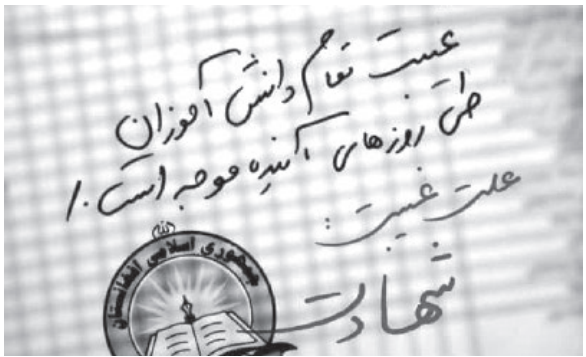 غیبت تمام دانش آموزان
طی روزهای آینده موجه است./
علت غیبت:
شهادت
جمهوری اسلامی افغانستان